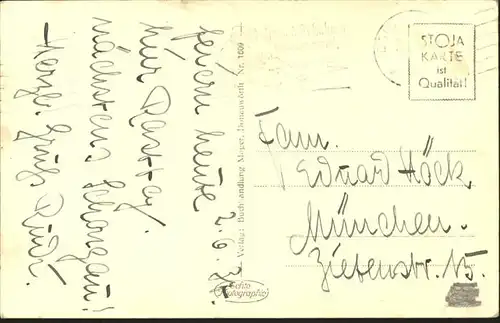 feiern heute 2.6.35
hier Rasttag.
nächstens Schongau!
Herzl. Grüße Rudi.
Verlag: Buchhandlung Mayer, Donauwörth Nr. 1609
Echte
Photographie
STOJA
KARTE
ist
Qualität!
Fam.
Eduard Höck,
München.
Zietenstr. 15.